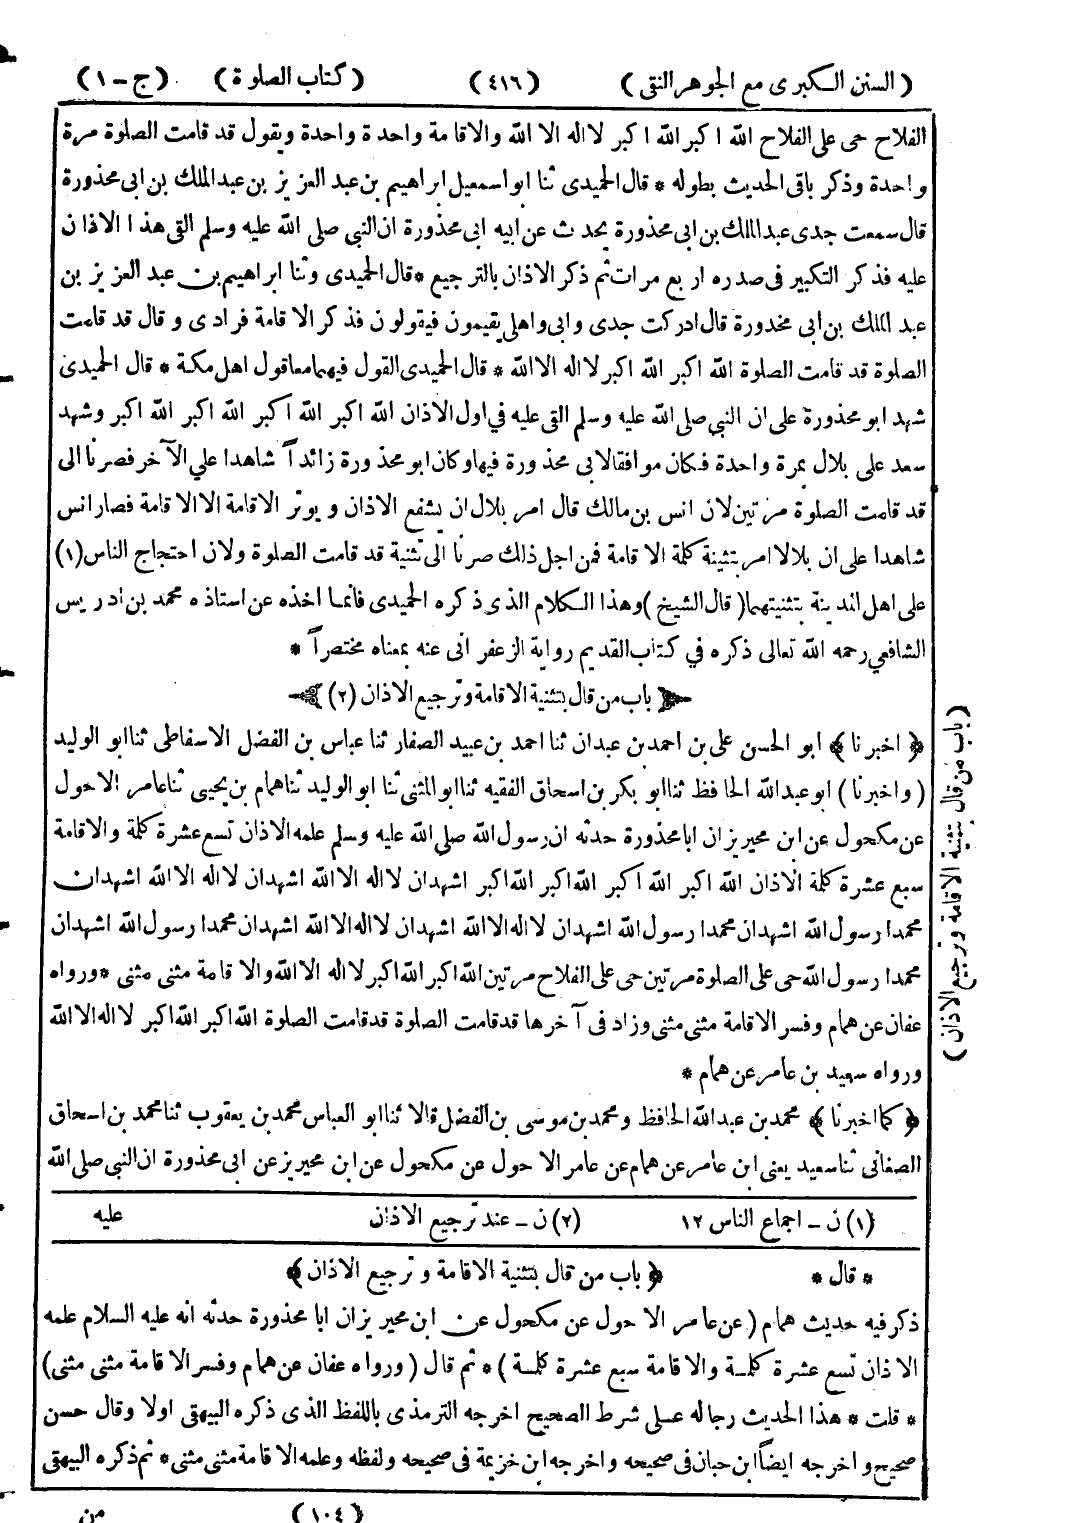 ( السنن الكبرى مع الجوهر النقى ) (٤١٦) ( كتاب الصلوة ) ( ج - ١ )
الفلاح حى على الفلاح الله اكبر الله اكبر لا اله الا الله والاقامة واحدة واحدة ويقول قد قامت الصلوة مرة
واحدة وذكر باقى الحديث بطوله * قال الحميدى ثنا ابو اسمعيل ابراهيم بن عبد العزيز بن عبد الملك بن ابى محذورة
قال سمعت جدى عبد الملك بن ابى محذورة يحدث عن ابيه ابى محذورة ان النبي صلى الله عليه وسلم القى هذا الاذان
عليه فذكر التكبير فى صدره اربع مرات ثم ذكر الاذان بالترجيع * قال الحميدى وثنا ابراهيم بن عبد العزيز بن
عبد الملك بن ابى محذورة قال ادركت جدى وابى واهلى يقيمون فيقولون فذكر الاقامة فرادى وقال قد قامت
الصلوة قد قامت الصلوة الله اكبر الله اكبر لا اله الا الله * قال الحميدى القول فيهما معا قول اهل مكة * قال الحميدى
شهد ابو محذورة على ان النبي صلى الله عليه وسلم القى عليه في اول الاذان الله اكبر الله اكبر الله اكبر الله اكبر وشهد
سعد على بلال بمرة واحدة فكان موافقا لابى محذورة فيها وكان ابو محذورة زائداً شاهدا علي الآخر فصرنا الى
قد قامت الصلوة مرتين لان انس بن مالك قال امر بلال ان يشفع الاذان ويوتر الاقامة الا الاقامة فصار انس
شاهدا على ان بلالا امر بتثينة كلمة الاقامة فمن اجل ذلك صرنا الى تثنية قد قامت الصلوة ولان احتجاج الناس (١)
على اهل المدينة بتثنيتهما ( قال الشيخ ) وهذا الكلام الذى ذكره الحميدى فانما اخذه عن استاذه محمد بن ادريس
الشافعي رحمه الله تعالى ذكره في كتاب القديم رواية الزعفرانى عنه بمعناه مختصراً *
باب من قال بتثنية الاقامة وترجيع الاذان (٢)
﴿ اخبرنا ﴾ ابو الحسن على بن احمد بن عبدان ثنا احمد بن عبيد الصفار ثنا عباس بن الفضل الاسفاطى ثنا ابو الوليد
( واخبرنا ) ابو عبد الله الحافظ ثنا ابو بكر بن اسحاق الفقيه ثنا ابو المثنى ثنا ابو الوليد ثنا همام بن يحيى ثنا عامر الاحول
عن مكحول عن ابن محيريز ان ابا محذورة حدثه ان رسول الله صلى الله عليه وسلم علمه الاذان تسع عشرة كلمة والاقامة
سبع عشرة كلمة الاذان الله اكبر الله اكبر الله اكبر الله اكبر اشهد ان لا اله الا الله اشهد ان لا اله الا الله اشهد ان
محمدا رسول الله اشهد ان محمدا رسول الله اشهد ان لا اله الا الله اشهد ان لا اله الا الله اشهد ان محمدا رسول الله اشهد ان
محمدا رسول الله حى على الصلوة مرتين حى على الفلاح مرتين الله اكبر الله اكبر لا اله الا الله والاقامة مثنى مثنى * ورواه
عفان عن همام وفسر الاقامة مثنى مثنى وزاد فى آخرها قد قامت الصلوة قد قامت الصلوة الله اكبر الله اكبر لا اله الا الله
ورواه سعيد بن عامر عن همام *
﴿ كما اخبرنا ﴾ محمد بن عبد الله الحافظ ومحمد بن موسى بن الفضل قالا ثنا ابو العباس محمد بن يعقوب ثنا محمد بن اسحاق
الصغانى ثنا سعيد يعنى ابن عامر عن همام عن عامر الاحول عن مكحول عن ابن محيريز عن ابى محذورة ان النبي صلى الله
عليه
(١) ن - اجماع الناس ١٢ (٢) ن - عند ترجيع الاذان
* قال * ﴿ باب من قال بتثنية الاقامة وترجيع الاذان ﴾
ذكر فيه حديث همام ( عن عامر الاحول عن مكحول عن ابن محيريز ان ابا محذورة حدثه انه عليه السلام علمه
الاذان تسع عشرة كلمة والاقامة سبع عشرة كلمة ) * ثم قال ( ورواه عفان عن همام وفسر الاقامة مثنى مثنى )
* قلت * هذا الحديث رجاله على شرط الصحيح اخرجه الترمذى باللفظ الذى ذكره البيهقى اولا وقال حسن
صحيح واخرجه ايضاً ابن حبان فى صحيحه واخرجه ابن خزيمة فى صحيحه ولفظه وعلمه الاقامة مثنى مثنى * ثم ذكره البيهقى
من
(١٠٤)
( باب من قال بتثنية الاقامة وترجيع الاذان )